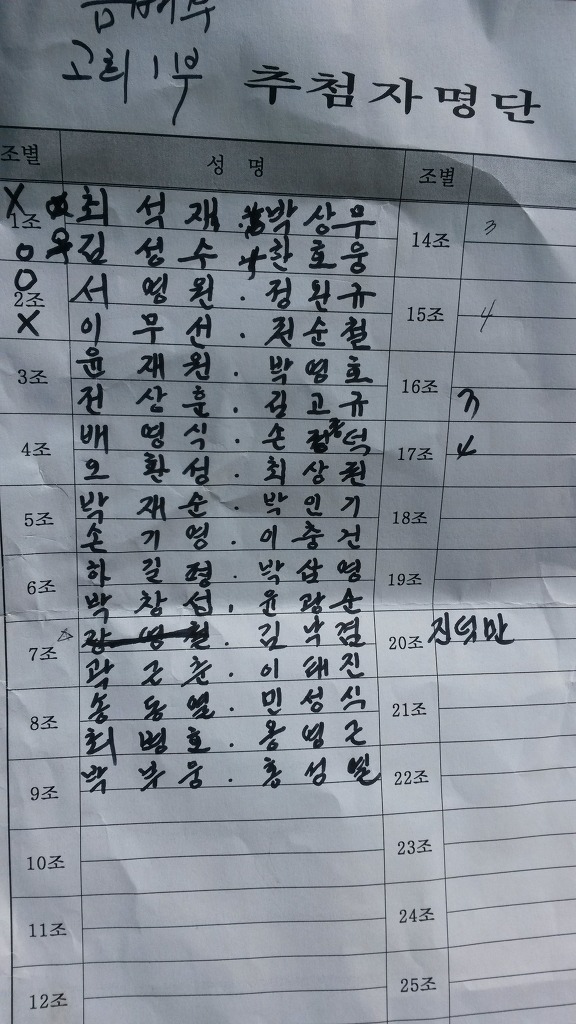 금배부
고희 1부
추첨자명단
조별 성 명 조별
X 1조 최석재 . 박상무 14조 3
O 김성수 . 한호웅
O 2조 서영원 . 정완규 15조 4
X 이무선 . 전순철
3조 윤재원 . 박영호 16조
전상훈 . 김고규 3
4조 배영식 . 손정덕 17조 4
오환성 . 최상권
5조 박재순 . 박인기 18조
손기영 . 이충건
6조 하길평 . 박삼영 19조
박창섭 . 윤광순
7조 . 김낙결 20조 진덕만
곽근춘 . 이태진
8조 송동열 . 민성식 21조
최병호 . 옹영근
9조 박부웅 . 홍성빌 22조
10조 23조
11조 24조
12조 25조